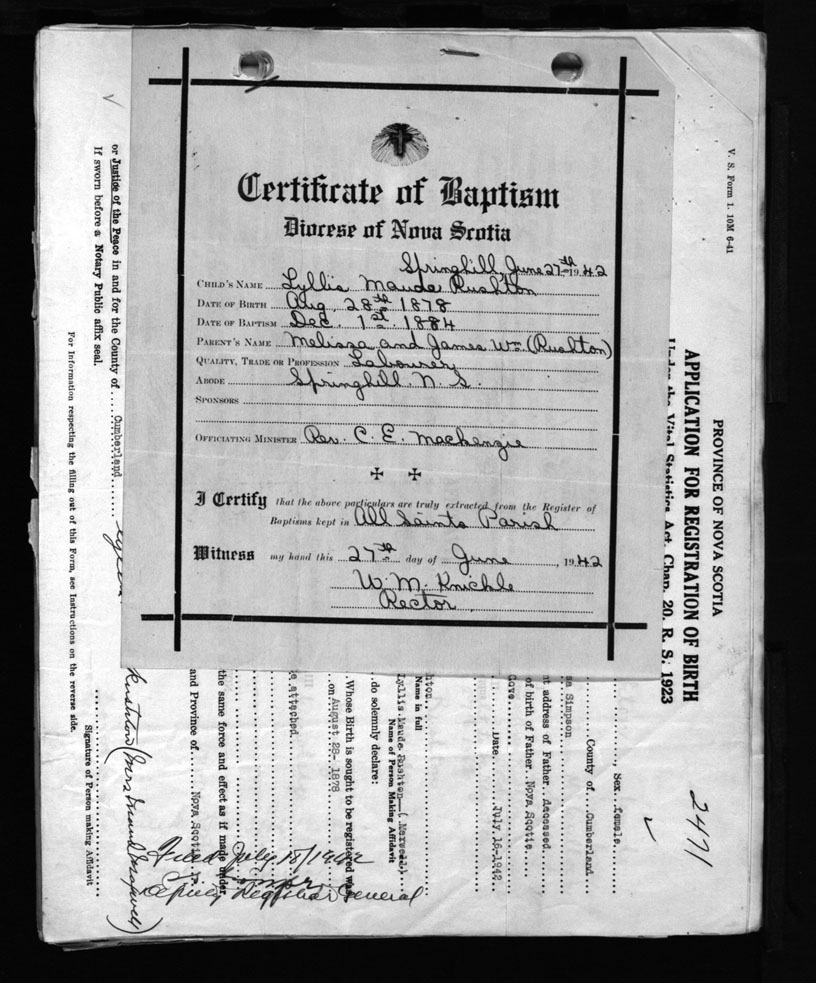 Certificate of Baptism
Diocese of Nova Scotia
Springhill, June 27th 1942
CHILD'S NAME Lyllis Maude Rushton
DATE OF BIRTH Aug. 28th 1878
DATE OF BAPTISM Dec. 1st. 1884
PARENT'S NAME Melissa and James Wm. (Rushton)
QUALITY, TRADE OR PROFESSION Labourer
ABODE Springhill. N. S.
SPONSORS
OFFICIATING MINISTER Rev. C. E. Mackenzie
I Certify that the above particulars are truly extracted from the Register of
Baptisms kept in All Saints Parish
Witness my hand this 27th day of June, 1942
W. M. Knickle
Rector
V. S. Form 1. 10M 6-41
2471
PROVINCE OF NOVA SCOTIA
APPLICATION FOR REGISTRATION OF BIRTH
Under the Vital Statistics Act, Chap. 20, R. S. 1923
, Sex female.
County of Cumberland
Simpson
address of Father deceased
of birth of Father Nova Scotia
Gove
Date July 16-1942
hton
Name in full
Lyllis Maude Rushton--( Maxwell)
Name of Person Making Affidavit
do solemnly declare:
Whose Birth is sought to be registered was
on August 28- 1878
attached
the same force and effect as if made under
and Province of Nova Scotia
Filed July 18/1942
Deputy Registrar General
or Justice of the Peace in and for the County of Cumberland
If sworn before a Notary Public affix seal.
Signature of Person making Affidavit
For Information respecting the filling out of this Form, see Instructions on the reverse side.